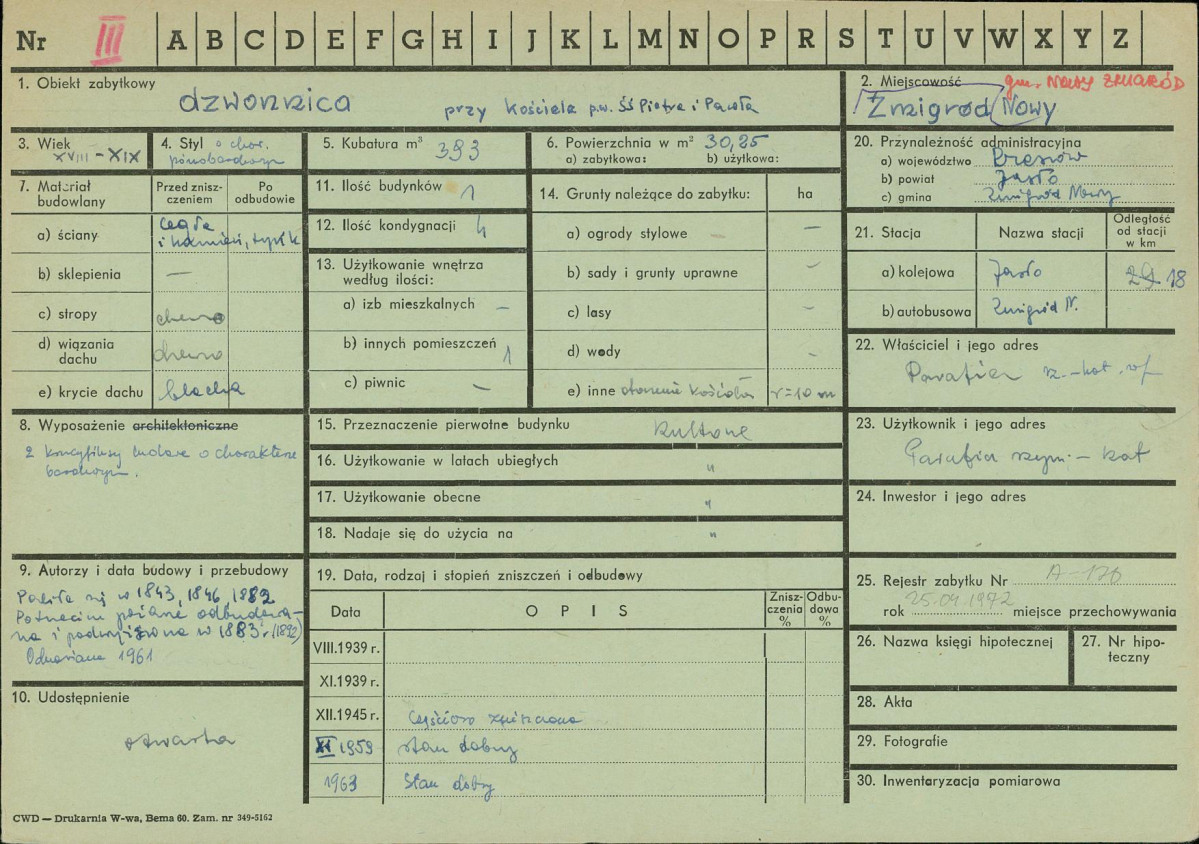 Nr III A B C D E F G H I J K L M N O P R S T U V W X Y Z
1. Obiekt zabytkowy
dzwonnica przy kościele p.w. ŚŚ Piotra i Pawła
2. Miejscowość gm. NOWY ŻMIGRÓD
Żmigród Nowy
3. Wiek
XVIII – XIX
4. Styl o char.
późnobarokowym
5. Kubatura m³ 393
6. Powierzchnia w m² 30,25
a) zabytkowa: b) użytkowa:
7. Materiał budowlany
Przed zniszczeniem
Po odbudowie
a) ściany cegła
i kamień, tynk
b) sklepienia —
c) stropy drewno
d) wiązania dachu drewno
e) krycie dachu blacha
8. Wyposażenie architektoniczne
2 o charakterze
barokowym.
9. Autorzy i data budowy i przebudowy
Paliła się w 1843, 1846, 1882
Po trzecim pożarze odbudowa-
na i podwyższona w 1883 r. (1892)
Odnowiona 1961
10. Udostępnienie
otwarta
11. Ilość budynków 1
12. Ilość kondygnacji 4
13. Użytkowanie wnętrza
według ilości:
a) izb mieszkalnych –
b) innych pomieszczeń 1
c) piwnic –
14. Grunty należące do zabytku: ha
a) ogrody stylowe –
b) sady i grunty uprawne –
c) lasy –
d) wody –
e) inne otoczenie kościoła r=10 m
15. Przeznaczenie pierwotne budynku kultowe
16. Użytkowanie w latach ubiegłych "
17. Użytkowanie obecne "
18. Nadaje się do użycia na "
19. Data, rodzaj i stopień zniszczeń i odbudowy
Data OPIS Zniszczenia % Odbudowa %
VIII.1939 r.
XI.1939 r.
XII.1945 r. Częściowo zniszczona
XI 1959 stan dobry
1963 Stan dobry
20. Przynależność administracyjna
a) województwo Rzeszów
b) powiat Jasło
c) gmina Żmigród Nowy
21. Stacja Nazwa stacji
Odległość
od stacji
w km
a) kolejowa Jasło 18
b) autobusowa Żmigród N.
22. Właściciel i jego adres
Parafia rz.-kat.
23. Użytkownik i jego adres
Parafia rzym. – kat
24. Inwestor i jego adres
25. Rejestr zabytku Nr A-176
rok 25.04.1972 miejsce przechowywania
26. Nazwa księgi hipotecznej
27. Nr hipo-
teczny
28. Akta
29. Fotografie
30. Inwentaryzacja pomiarowa
CWD — Drukarnia W-wa, Bema 60. Zam. nr 349-5162